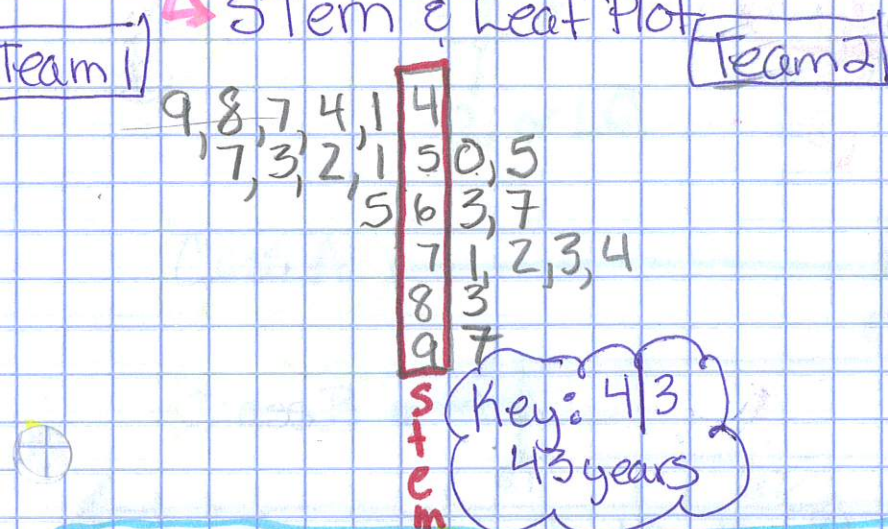 Stem & Leaf Plot
Team 1
Team 2
9, 8, 7, 4, 1 4
7, 3, 2, 1 5 0, 5
5 6 3, 7
7 1, 2, 3, 4
8 3
9 7
Stem
Key: 4|3
43 years